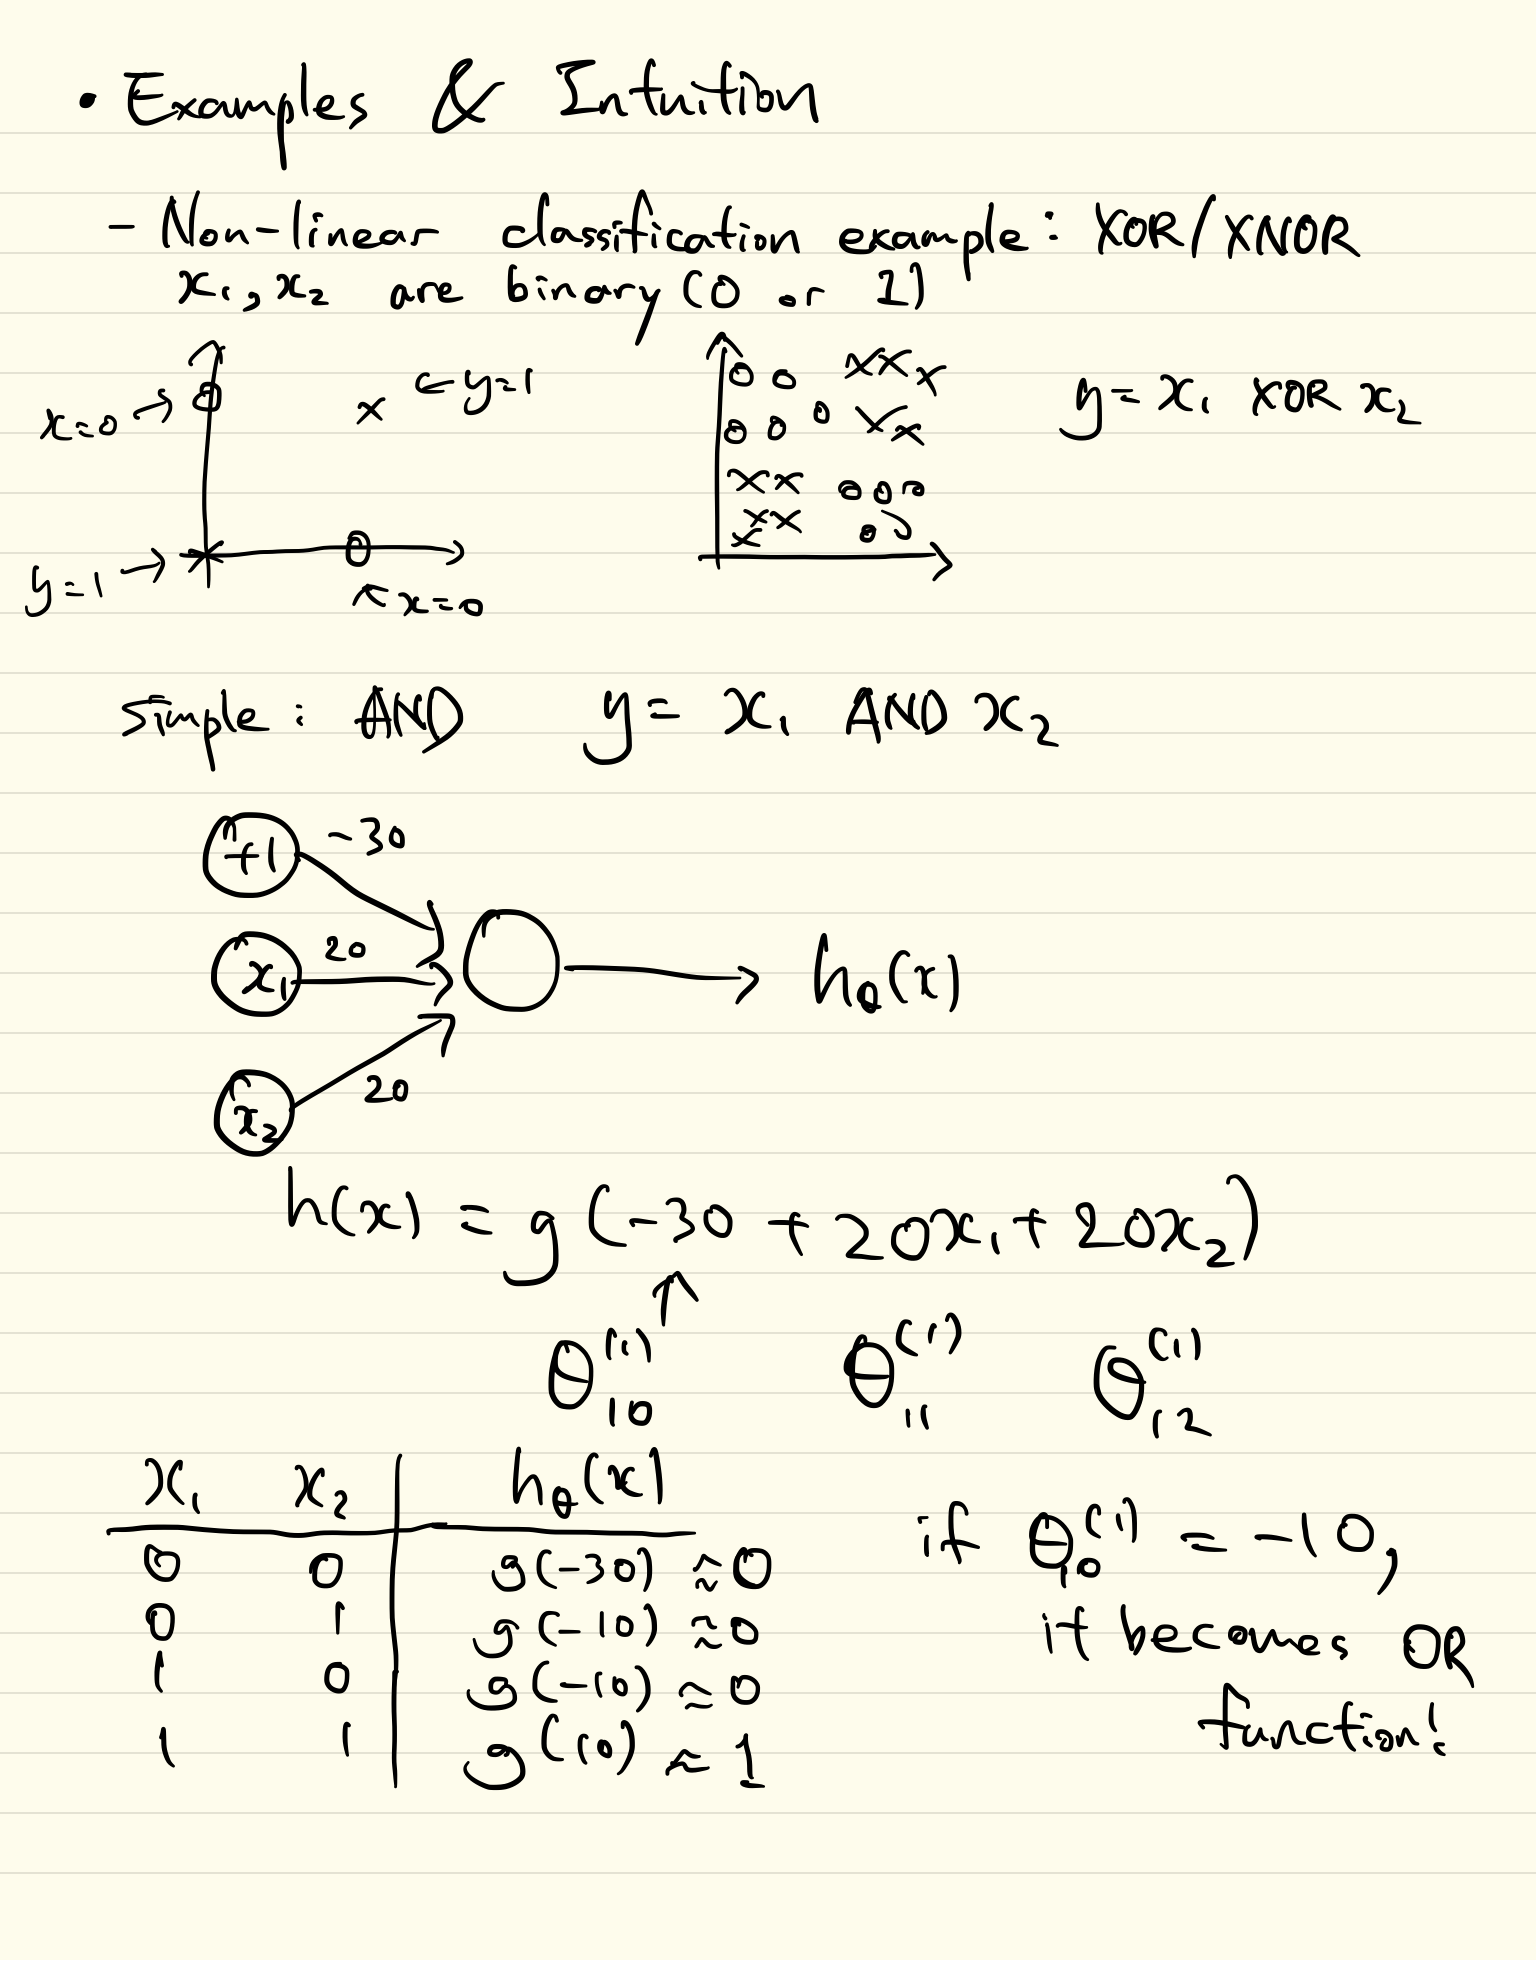 • Examples & Intuition
- Non-linear classification example: XOR/XNOR
x₁, x₂ are binary (0 or 1)
x=0 →
← y=1
y = x₁ XOR x₂
y=1 →
↖ x=0
simple: AND y = x₁ AND x₂
+1 -30
x₁ 20
h_θ(x)
x₂ 20
h(x) = g(-30 + 20x₁ + 20x₂)
↑
θ₁₀⁽¹⁾ θ₁₁⁽¹⁾ θ₁₂⁽¹⁾
x₁ x₂ h_θ(x)
0 0 g(-30) ≈ 0
0 1 g(-10) ≈ 0
1 0 g(-10) ≈ 0
1 1 g(10) ≈ 1
if θ₁₀⁽¹⁾ = -10,
it becomes OR
function!